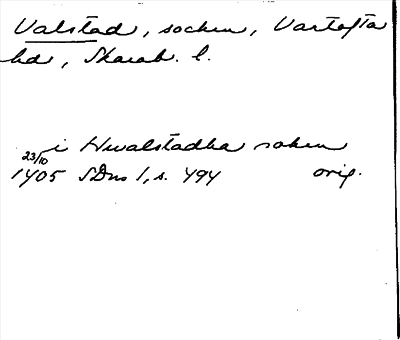 Valstad, socken, Vartofta
hd, Skarab. l.
i Hwalstadha sokn
23/10
1405 SDns 1, s. 494 orig.